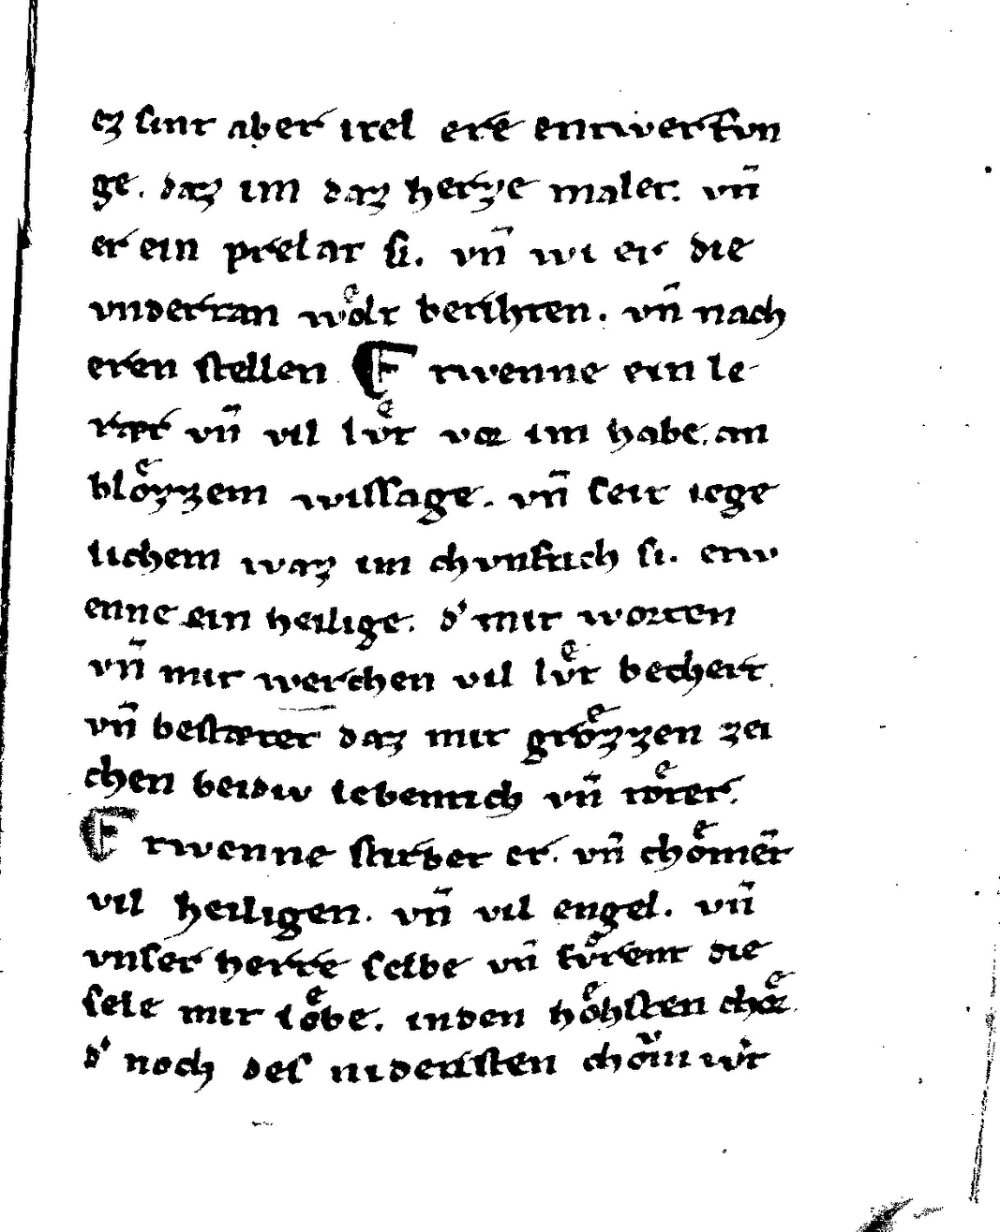 ez ſint aber itel ere entwerfvn
ge. daz im daz herze malet. vn̄
er ein prelat ſi. vn̄ wi er die
vndertan woͤlt berihten. vn̄ nach
eren ſtellen Etwenne ein le-
rær vn̄ vil lvͤt vor im habe. an
bloͤzzem wiſſage. vn̄ ſeit iege
lichem waz im chvnftich ſi. etw
enne ein heilige. d' mit worten
vn̄ mit werchen vil lvͤt bechert.
vn̄ beſtætet daz mit groͤzzen zei
chen beidiv lebentich vn̄ toͤter.
Etwenne ſtirbet er. vn̄ choͤmēt
vil heiligen. vn̄ vil engel. vn̄
vnſer herre ſelbe vn̄ fvͤrent die
ſele mit loͤbe. inden hoͤhſten choͤr.
d' noch deſ niderſten chovm wͥt